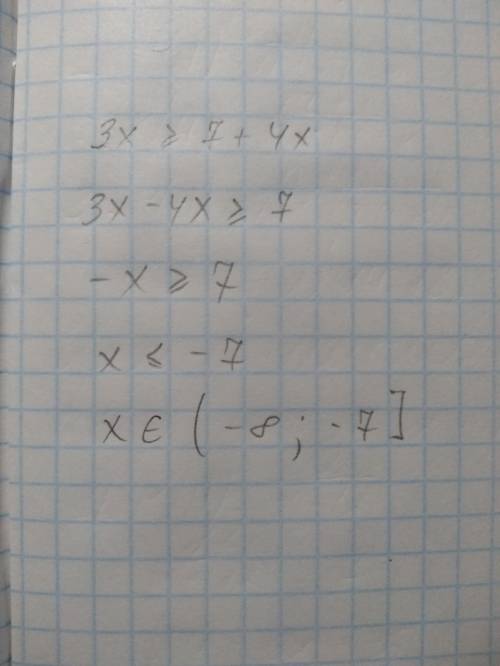 3x ⩾ 7 + 4x
3x - 4x ⩾ 7
-x ⩾ 7
x ⩽ -7
x ∈ (-∞; -7]